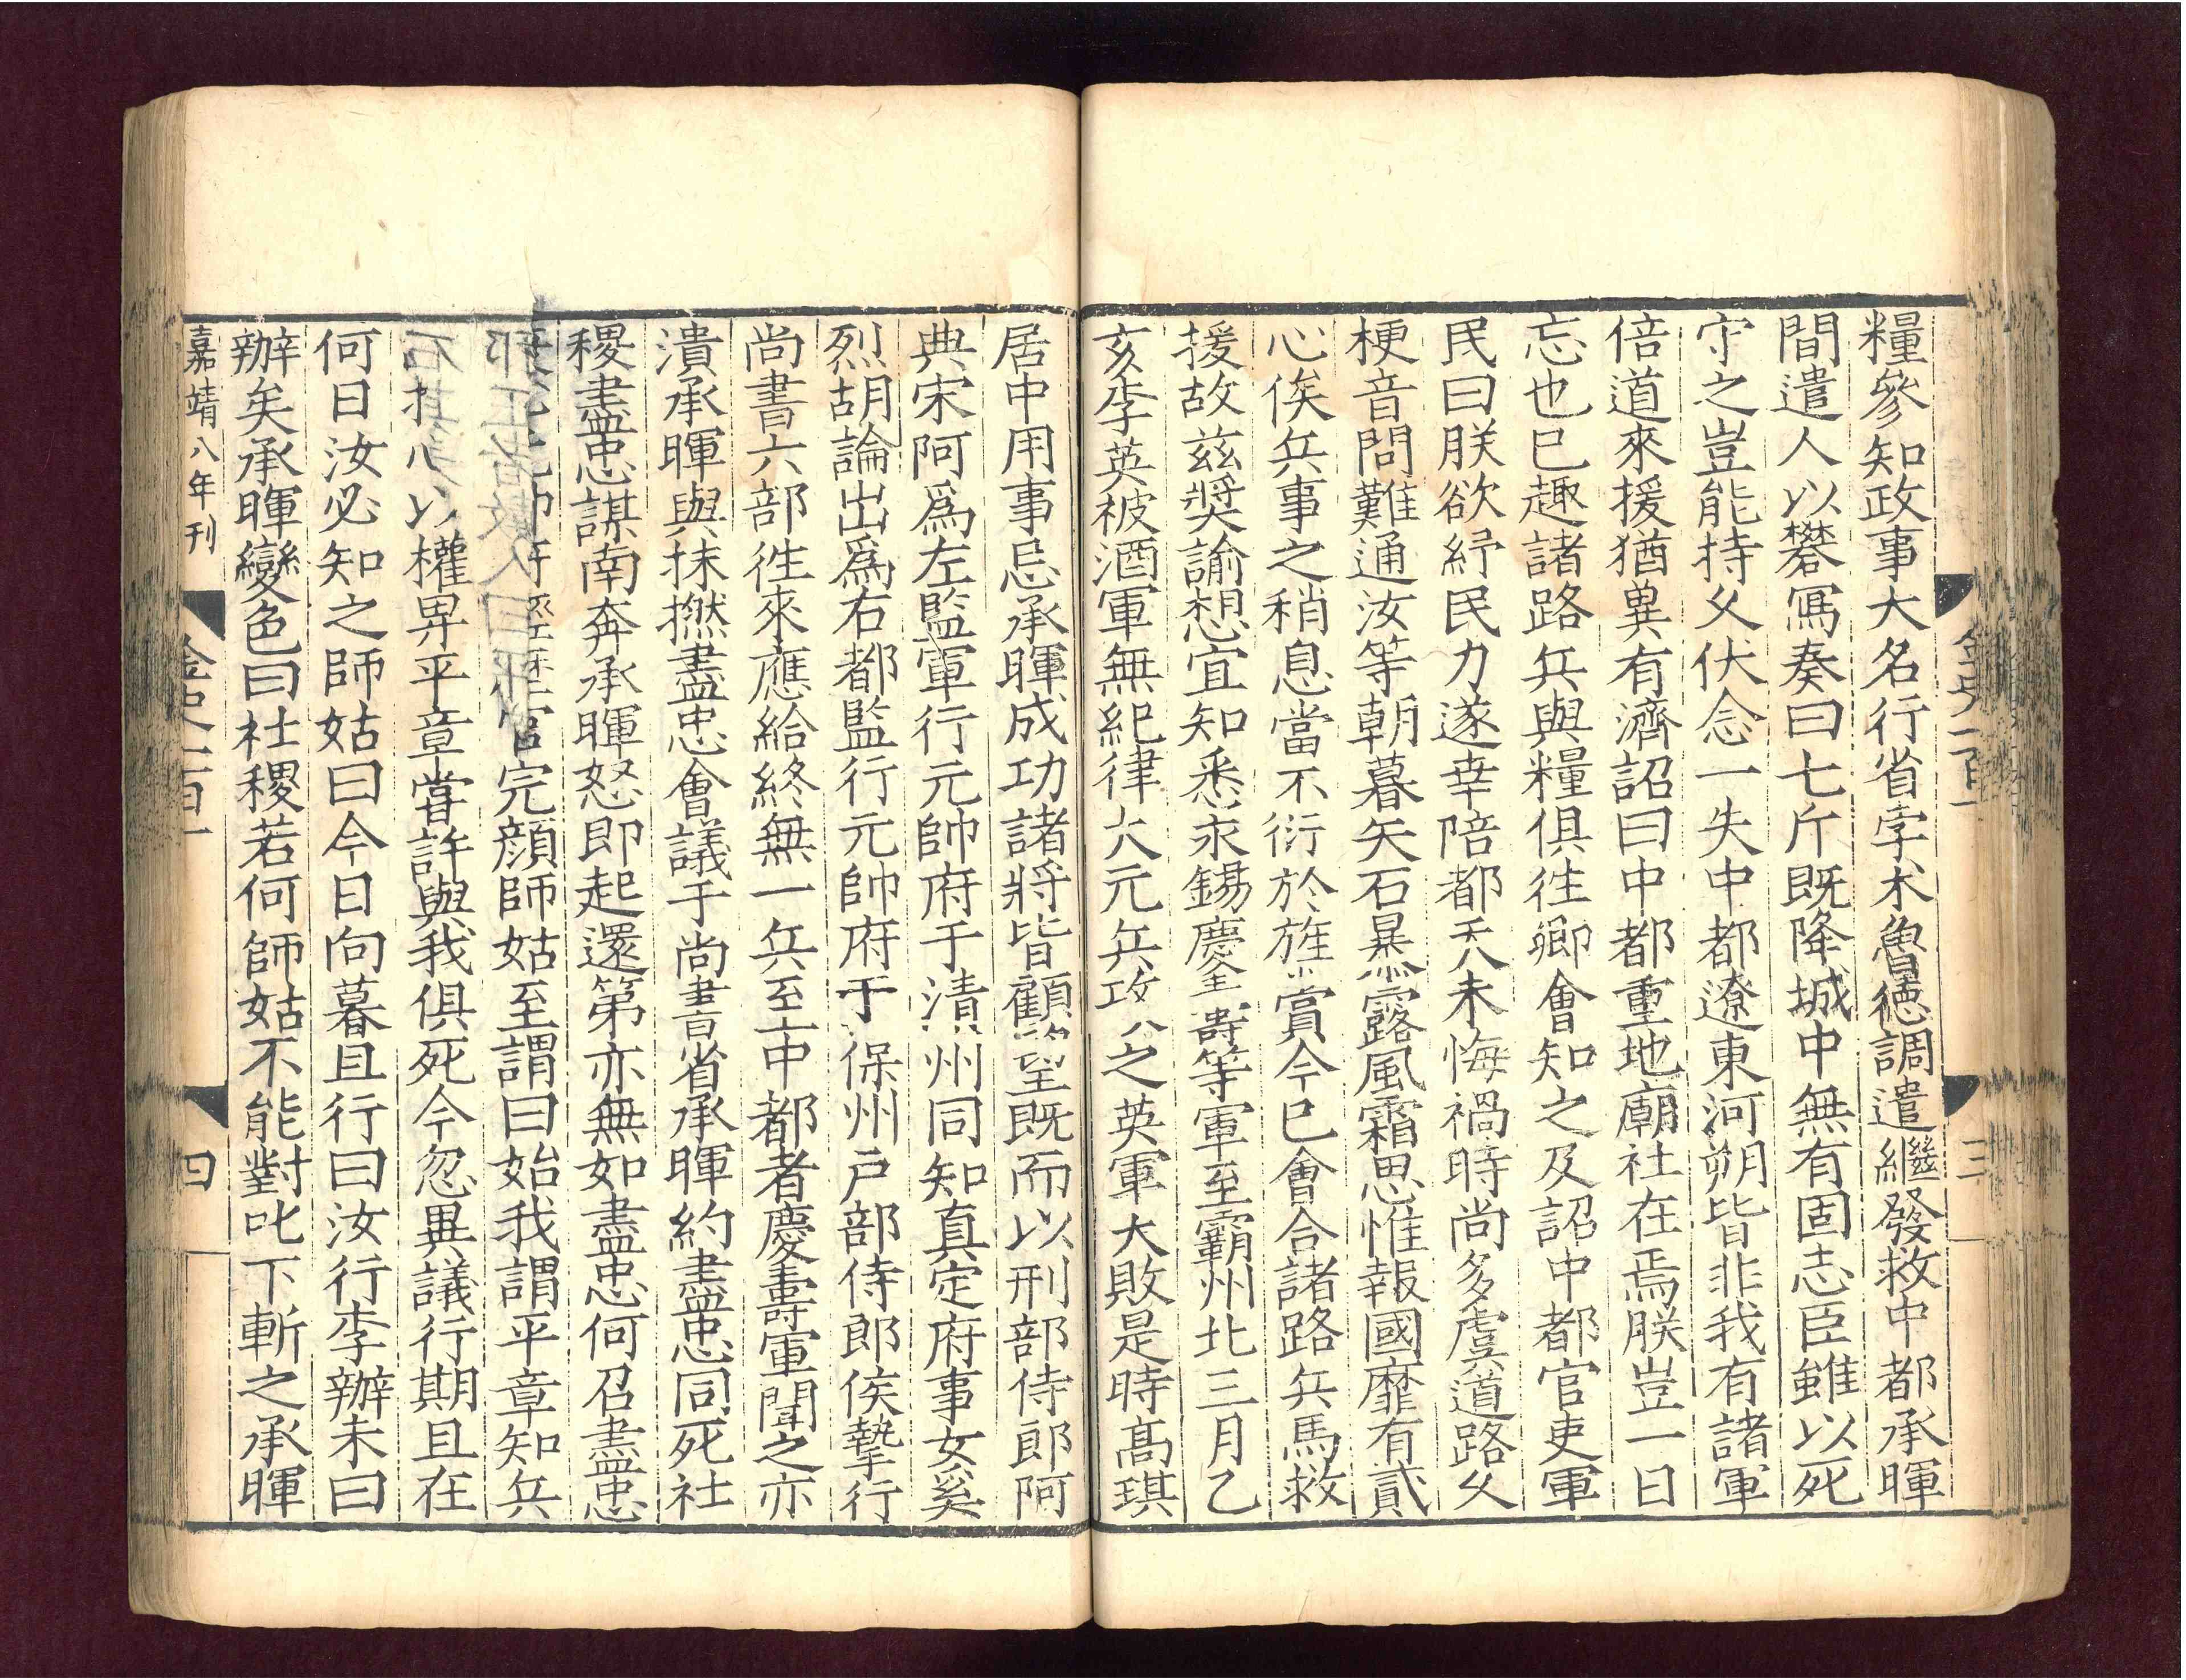 糧參知政事大名行省孛术魯德調遣繼發救中都承暉
間遣人以礬寫奏曰七斤既降城中無有固志臣雖以死
守之豈能持久伏念一失中都遼東河朔皆非我有諸軍
倍道來援猶冀有濟詔曰中都重地廟社在焉朕豈一日
忘也已趣諸路兵與糧俱徃卿會知之及詔中都官吏軍
民曰朕欲紓民力遂幸陪都天未悔禍時尚多虞道路久
梗音問難通汝等朝暮矢石暴露風霜思惟報國靡有貳
心俟兵事之稍息當不衍於旌賞今已會合諸路兵馬救
援故兹奬諭想宜知悉永錫慶壽等軍至霸州北三月乙
亥李英被酒軍無紀律大元兵攻之英軍大敗是時高琪
居中用事忌承暉成功諸將皆顧望既而以刑部侍郎阿
典宋阿爲左監軍行元帥府于清州同知真定府事女奚
烈胡論出爲右都監行元帥府于保州戶部侍郎侯摯行
尚書六部徃來應給終無一兵至中都者慶壽軍聞之亦
潰承暉與抹撚盡忠會議于尚書省承暉約盡忠同死社
稷盡忠謀南奔承暉怒即起還第亦無如盡忠何召盡忠
官完顔師姑至謂曰始我謂平章知兵
以權畀平章嘗許與我俱死今忽異議行期且在
何日汝必知之師姑曰今日向暮且行曰汝行李辦未曰
辦矣承暉變色曰社稷若何師姑不能對叱下斬之承暉
嘉靖八年刊
金史一百一
四